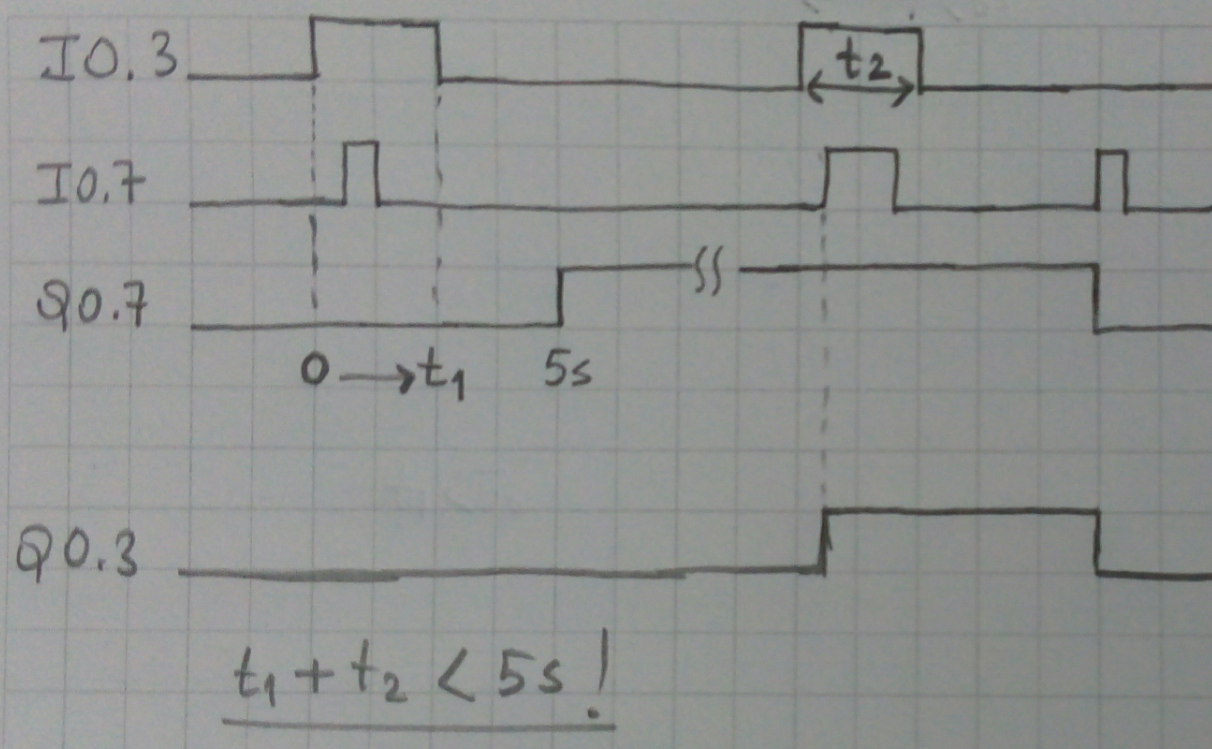 I0.3
t2
I0.7
Q0.7
0 → t1 5s
Q0.3
t1 + t2 < 5s!